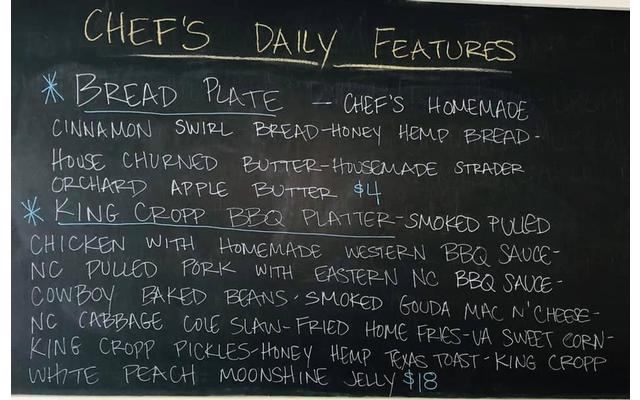 CHEF'S DAILY FEATURES
* BREAD PLATE - CHEF'S HOMEMADE
CINNAMON SWIRL BREAD-HONEY HEMP BREAD-
HOUSE CHURNED BUTTER-HOUSEMADE STRADER
ORCHARD APPLE BUTTER $4
* KING CROPP BBQ PLATTER-SMOKED PULLED
CHICKEN WITH HOMEMADE WESTERN BBQ SAUCE-
NC PULLED PORK WITH EASTERN NC BBQ SAUCE-
COWBOY BAKED BEANS-SMOKED GOUDA MAC N' CHEESE-
NC CABBAGE COLE SLAW-FRIED HOME FRIES-VA SWEET CORN-
KING CROPP PICKLES-HONEY HEMP TEXAS TOAST-KING CROPP
WHITE PEACH MOONSHINE JELLY $18